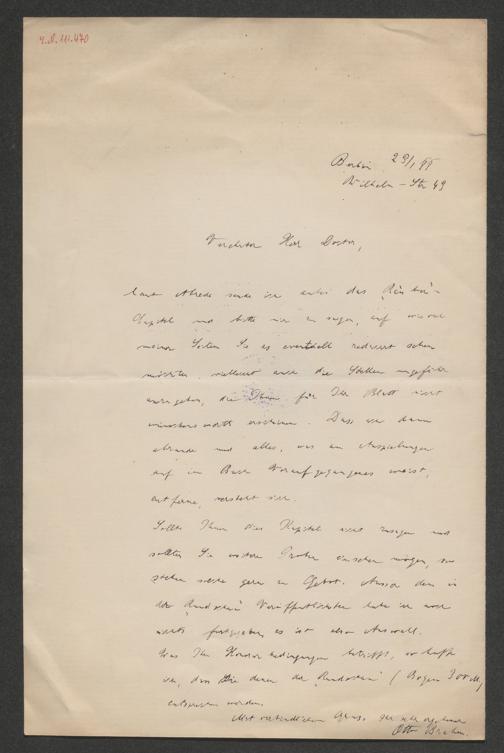 Berlin 29/1 88
Wilhelm-Str 49
Verehrter Herr Doctor,
laut Abrede sende ich anbei das
Capitel und bitte mir zu sagen, auf wieviel
meiner Seiten Sie es eventuell reducirt sehen
möchten, vielleicht auch die Stellen ungefähr
anzugeben, die Ihnen für Ihr Blatt nicht
wünschenswerth erscheinen. Dass ich dann
abrunde und alles, was an Anspielungen
auf im Buch Voraufgegangenes weist,
entferne, versteht sich.
Sollte Ihnen dies Kapitel nicht zusagen und
sollten Sie weitere Proben einsehen mögen, so
stehen solche gern zu Gebot. Ausser dem in
der Rundschau Veröffentlichten habe ich noch
nichts fortgegeben, es ist also Auswahl.
Was Ihre Honorarbedingungen betrifft, so hoffe
ich, dass sie denen der Rundschau (Bogen 300 M)
entsprechen werden.
Mit verbindlichem Gruss Ihr sehr ergebener
Otto Brahm.